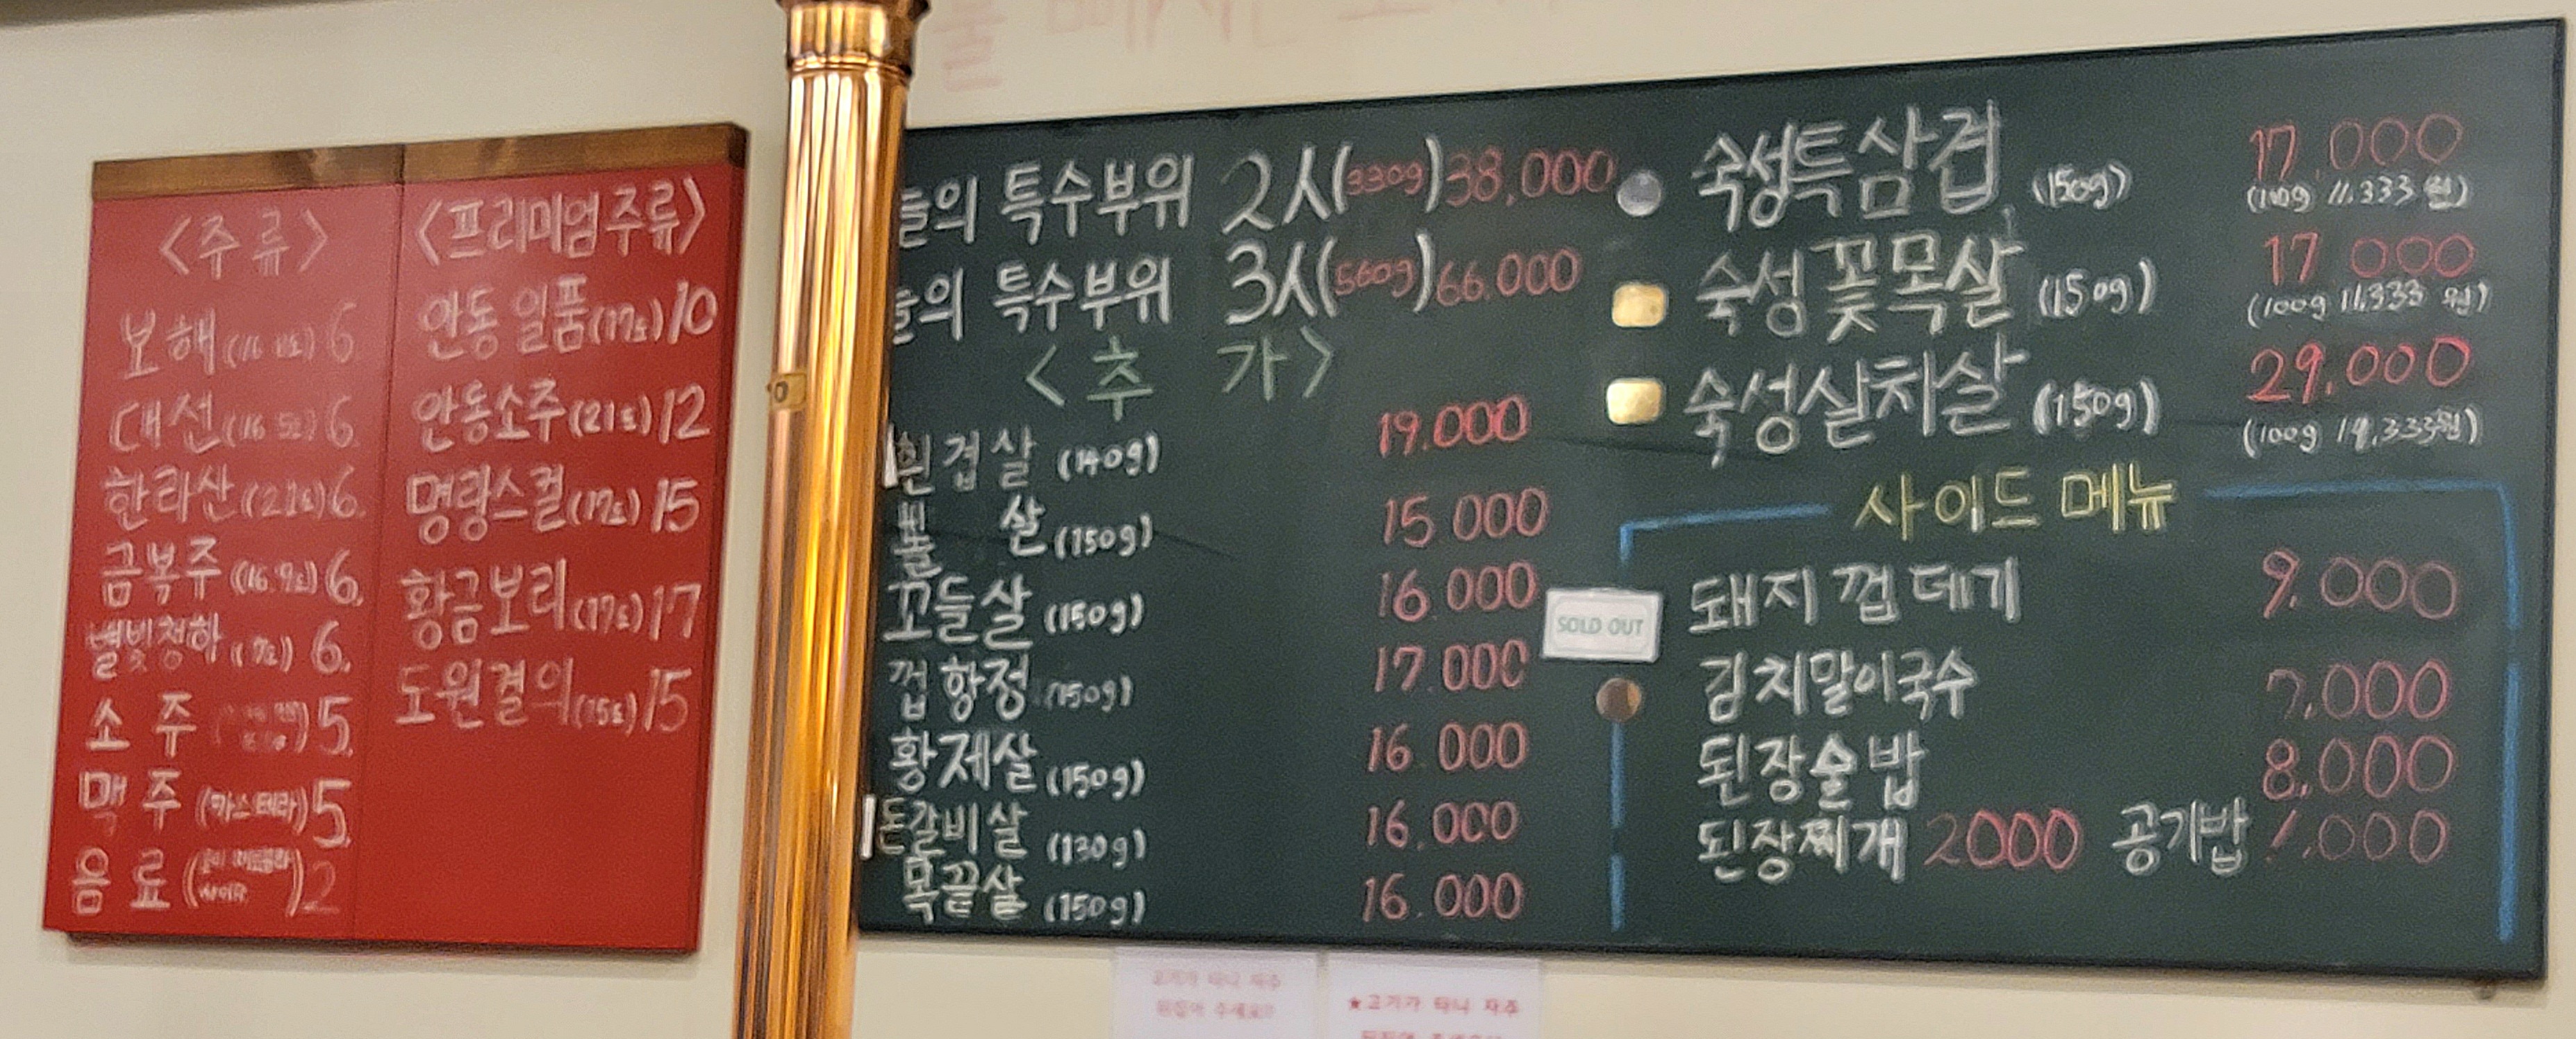 <주류>
보해 6
대선(16.5도)6
한라산(21도)6.
금복주(16.9도)6.
별빛청하(7도) 6.
소주 5.
맥주(카스테라)5.
음료 2
<프리미엄주류>
안동일품(17도)10
안동소주(21도)12
명량스컬(17도)15
황금보리(17도)17
도원결의(15도)15
늘의 특수부위 2人(330g)38,000
늘의 특수부위 3人(560g)66.000
<추 가>
흰겹살 (140g) 19.000
살(150g) 15 000
꼬들살(150g) 16.000
껍항정(150g) 17.000
황제살(150g) 16.000
돈갈비살 (130g) 16.000
목끝살 (150g) 16.000
숙성특삼겹 (150g) 17.000
(100g 11.333 원)
숙성꽃목살 (150g) 17 000
(100g 11.333 원)
숙성살치살 (150g) 29.000
(100g 19,333원)
사이드 메뉴
SOLD OUT
돼지껍데기 9.000
김치말이국수 7.000
된장술밥 8.000
된장찌개 2000 공기밥 1.000
고기가 타니 자주
뒤집어 주세요?
★고기가 타니 자주